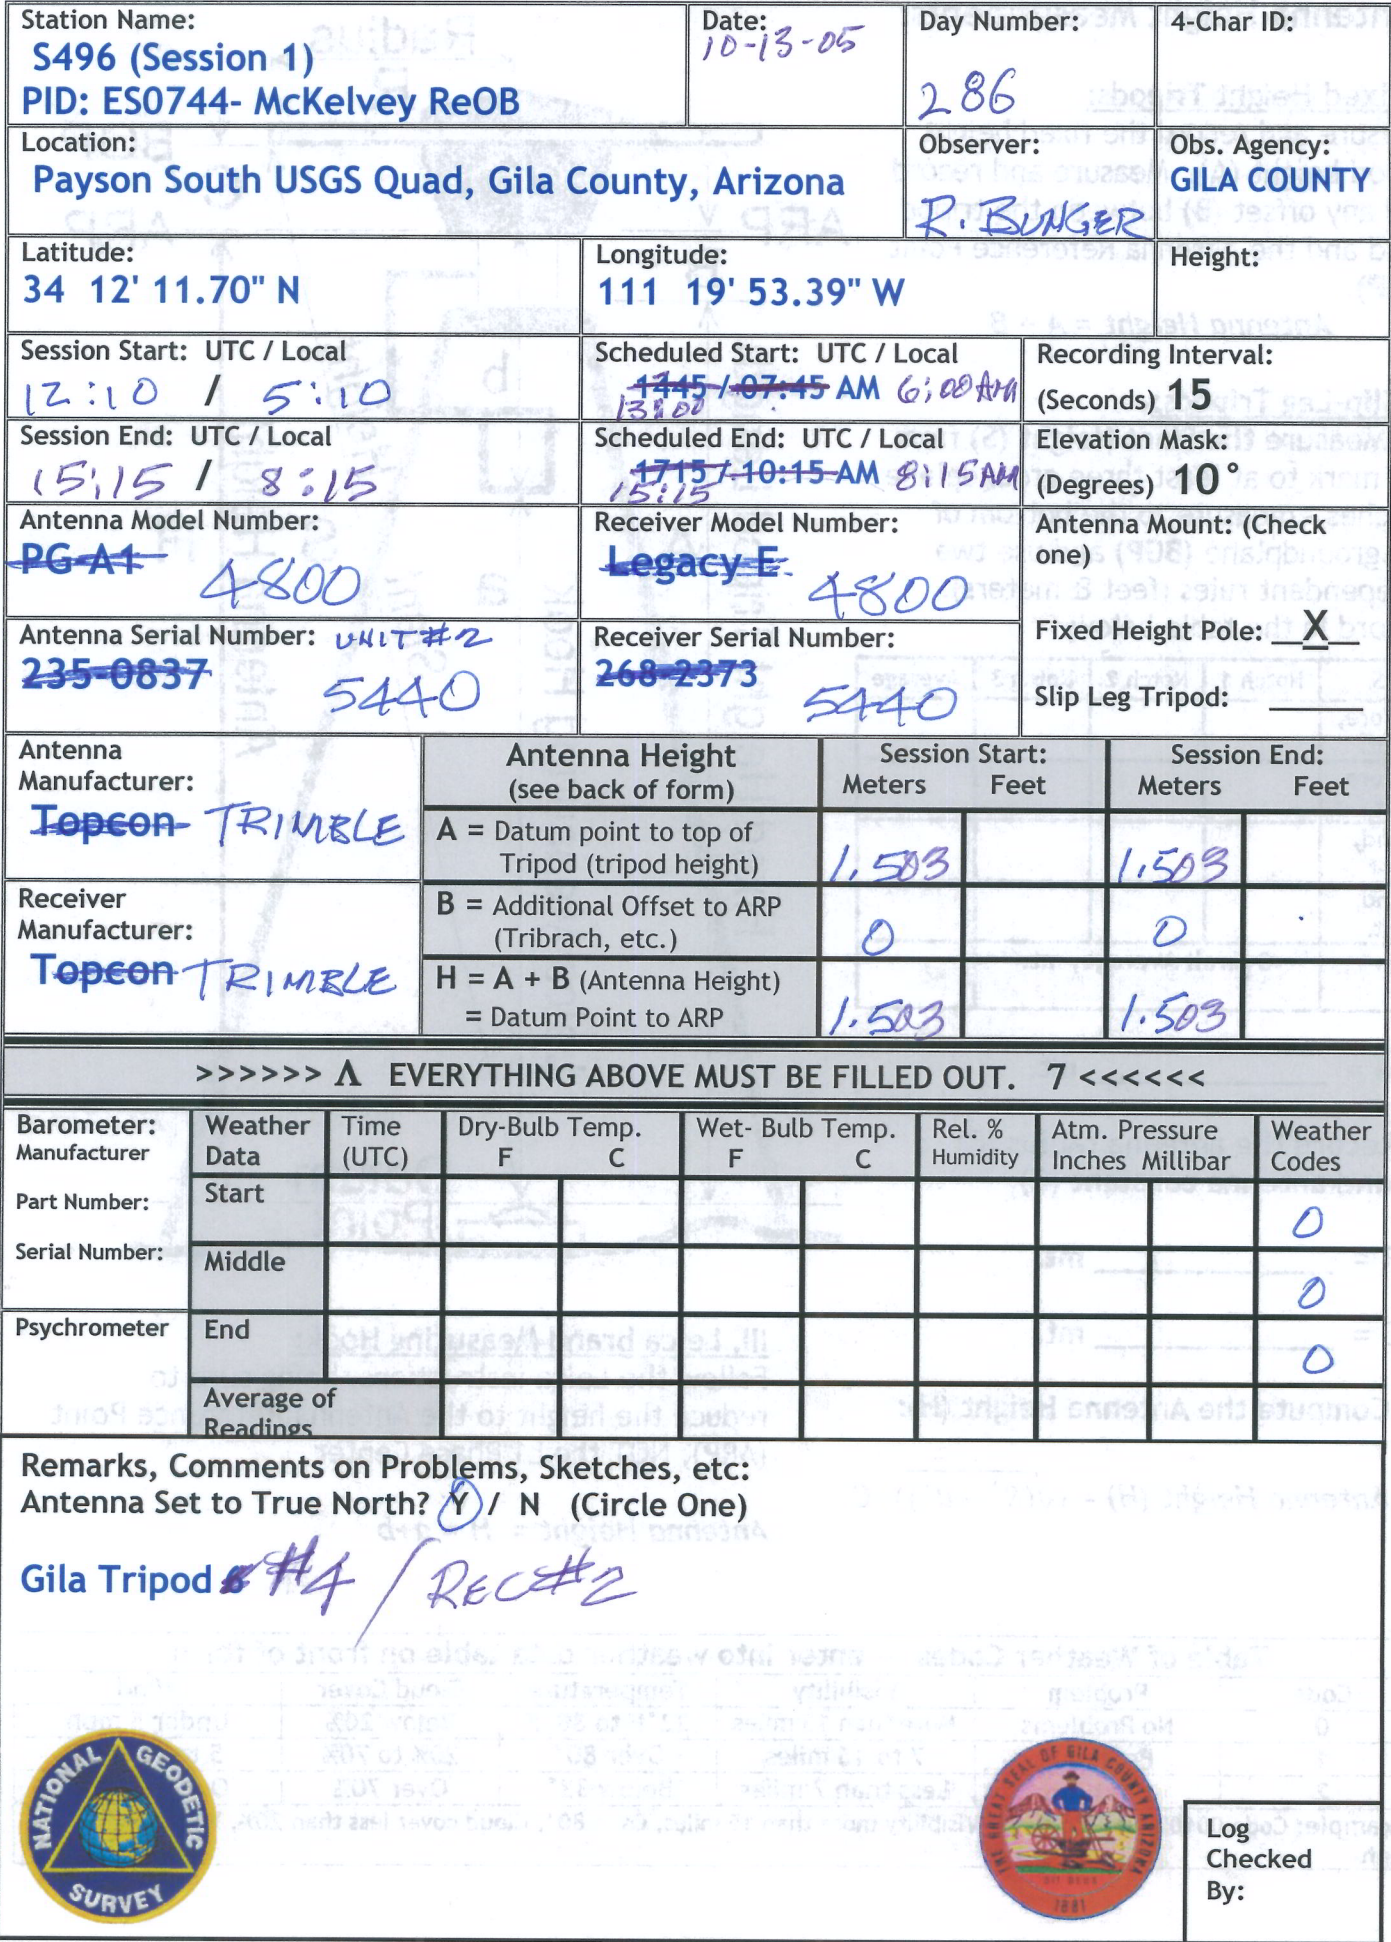 Station Name:
S496 (Session 1)
PID: ES0744- McKelvey ReOB
Date:
10-13-05
Day Number:
286
4-Char ID:
Location:
Payson South USGS Quad, Gila County, Arizona
Observer:
R. BUNGER
Obs. Agency:
GILA COUNTY
Latitude:
34 12' 11.70" N
Longitude:
111 19' 53.39" W
Height:
Session Start: UTC / Local
12:10 / 5:10
Scheduled Start: UTC / Local
1445 / 07:45 AM 6:00 AM
13:00
Recording Interval:
(Seconds) 15
Session End: UTC / Local
15:15 / 8:15
Scheduled End: UTC / Local
1715 / 10:15 AM 8:15 AM
15:15
Elevation Mask:
(Degrees) 10°
Antenna Model Number:
PG-A1 4800
Receiver Model Number:
Legacy E 4800
Antenna Mount: (Check
one)
Fixed Height Pole: X
Slip Leg Tripod:
Antenna Serial Number: UNIT #2
235-0837
5440
Receiver Serial Number:
268-2373
5440
Antenna
Manufacturer:
Topcon TRIMBLE
Receiver
Manufacturer:
Topcon TRIMBLE
Antenna Height
(see back of form)
Session Start:
Meters Feet
Session End:
Meters Feet
A = Datum point to top of
Tripod (tripod height)
1.503 1.503
B = Additional Offset to ARP
(Tribrach, etc.)
0 0
H = A + B (Antenna Height)
= Datum Point to ARP
1.503 1.503
>>>>>> Λ EVERYTHING ABOVE MUST BE FILLED OUT. 7 <<<<<<
Barometer:
Manufacturer
Part Number:
Serial Number:
Psychrometer
Weather
Data
Time
(UTC)
Dry-Bulb Temp.
F C
Wet- Bulb Temp.
F C
Rel. %
Humidity
Atm. Pressure
Inches Millibar
Weather
Codes
Start
0
Middle
0
End
0
Average of
Readings
Remarks, Comments on Problems, Sketches, etc:
Antenna Set to True North? Y / N (Circle One)
Gila Tripod #4 / REC #2
NATIONAL GEODETIC SURVEY
THE GREAT SEAL OF GILA COUNTY ARIZONA
1881
Log
Checked
By: